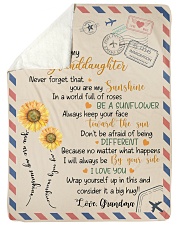 my
Granddaughter
Never forget that
you are my Sunshine
In a world full of roses
BE A SUNFLOWER
Always keep your face
toward the sun
Don't be afraid of being
DIFFERENT
Because no matter what happens
I will always be By your side
I LOVE YOU
Wrap yourself up in this and
consider it a big hug!!
Love, Grandma